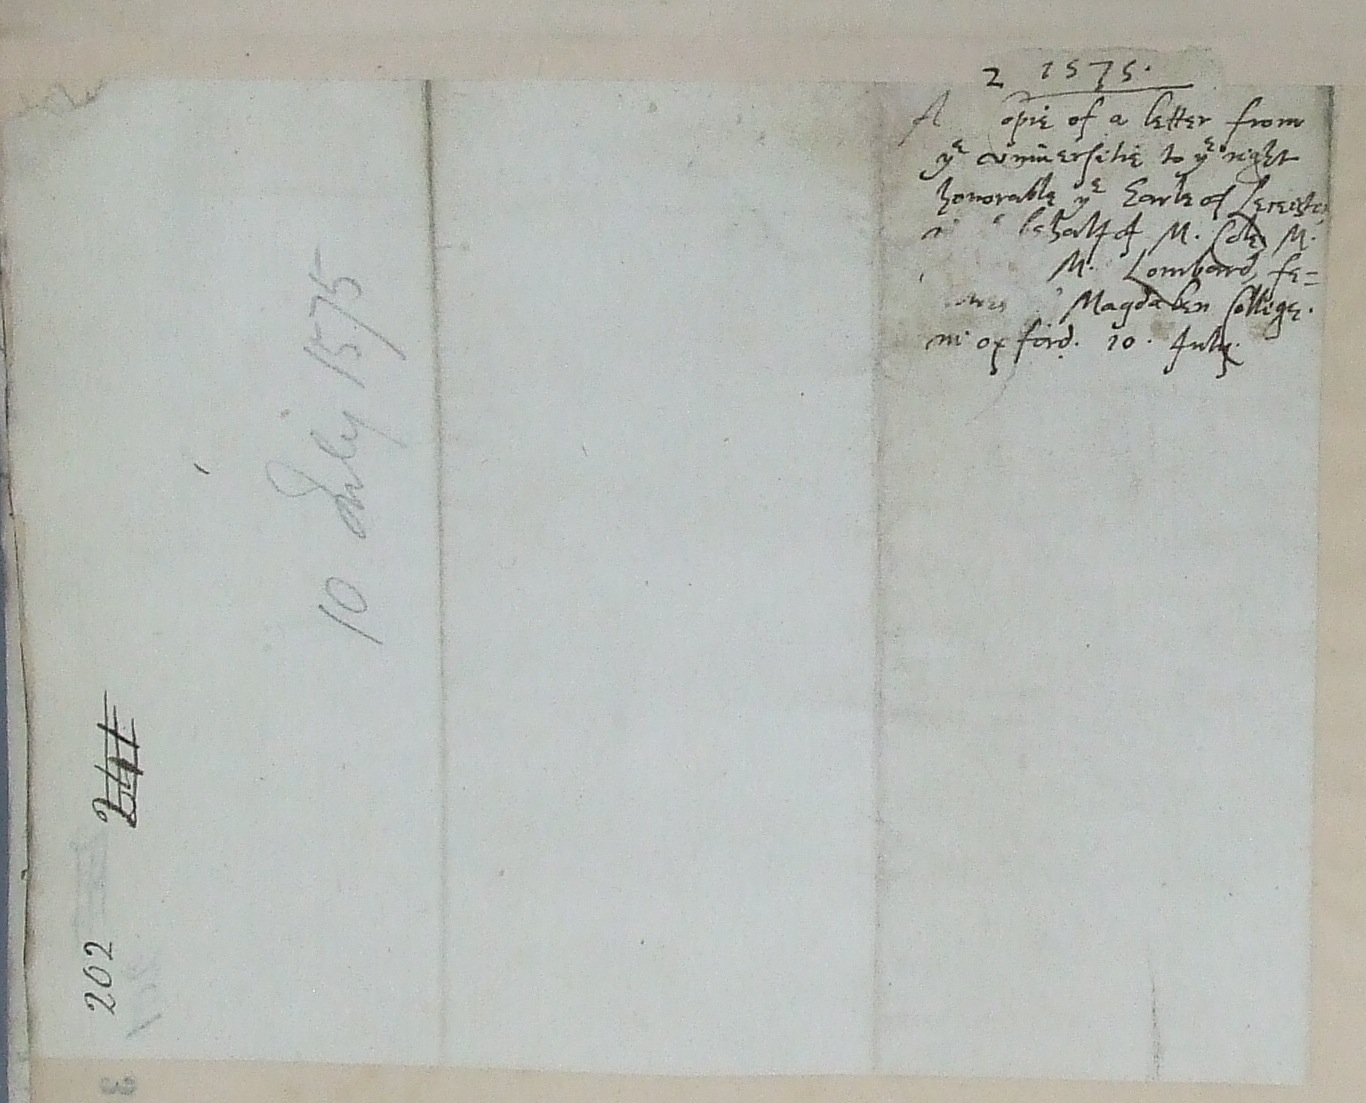 2 1575.
A opie of a letter from
yᵉ vniuersitie to yᵉ right
honorable yᵉ Earle of Leceister
behalf of M. Cole, M.
M. Lombard, fe=
Magdalen College.
in oxford. 10. July.
10 July 1575
202